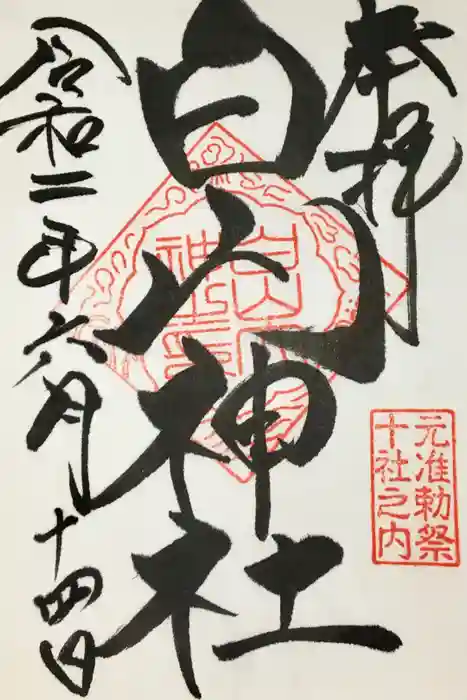 奉拝
白山神社
令和二年六月十四日
元准勅祭
十社之内